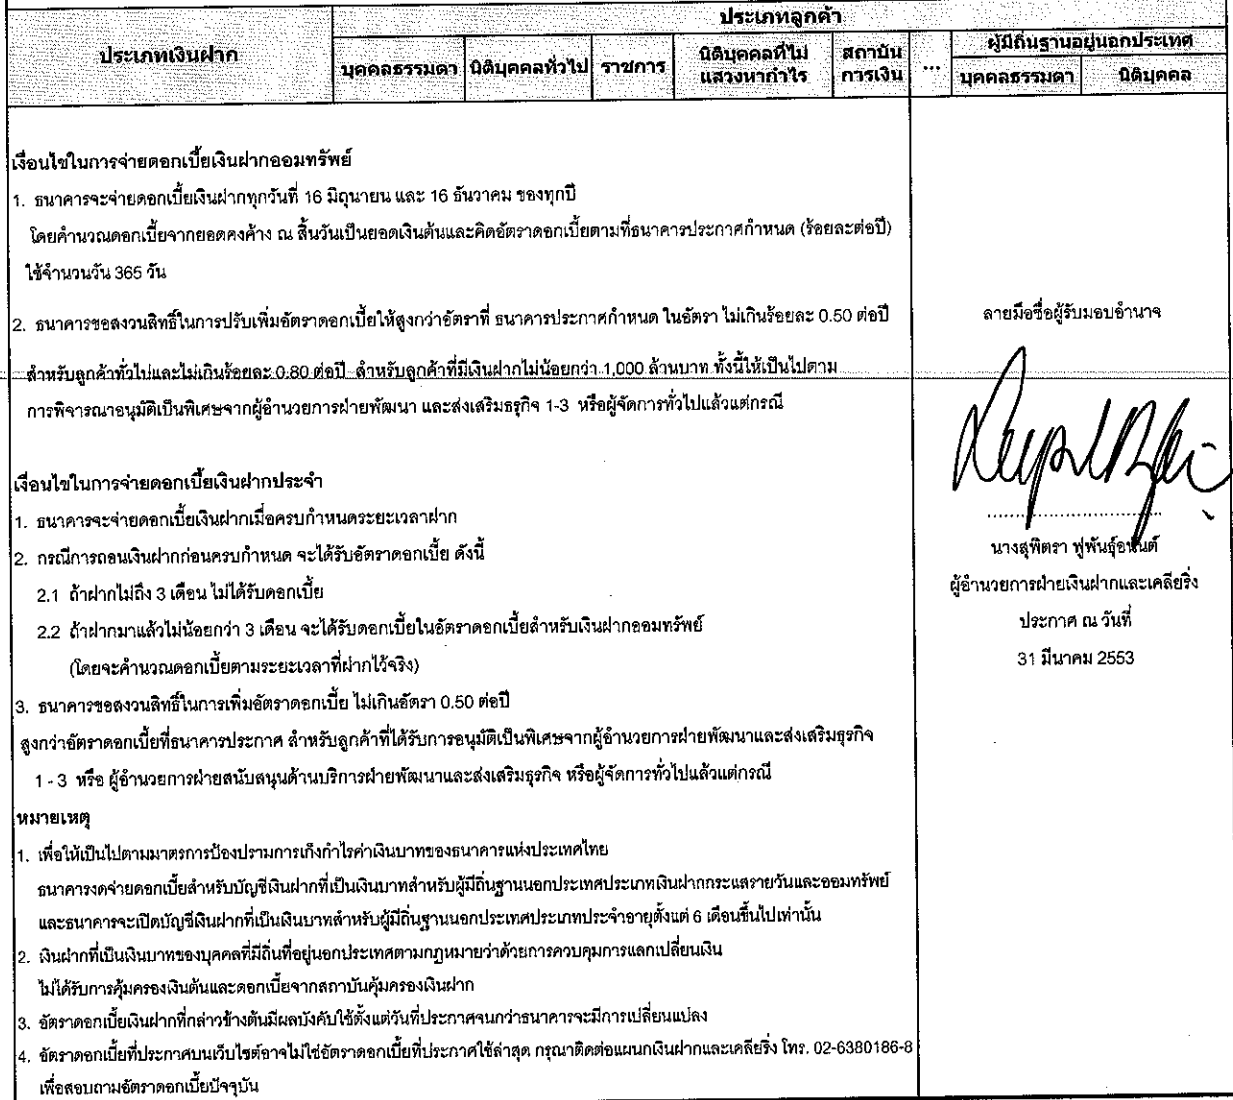 ประเภทลูกค้า
ประเภทเงินฝาก
บุคคลธรรมดา นิติบุคคลทั่วไป ราชการ นิติบุคคลที่ไม่แสวงหากำไร สถาบันการเงิน ... ผู้มีถิ่นฐานอยู่นอกประเทศ
บุคคลธรรมดา นิติบุคคล
เงื่อนไขในการจ่ายดอกเบี้ยเงินฝากออมทรัพย์
1. ธนาคารจะจ่ายดอกเบี้ยเงินฝากทุกวันที่ 16 มิถุนายน และ 16 ธันวาคม ของทุกปี
โดยคำนวณดอกเบี้ยจากยอดคงค้าง ณ สิ้นวันเป็นยอดเงินต้นและคิดอัตราดอกเบี้ยตามที่ธนาคารประกาศกำหนด (ร้อยละต่อปี)
ใช้จำนวนวัน 365 วัน
2. ธนาคารขอสงวนสิทธิ์ในการปรับเพิ่มอัตราดอกเบี้ยให้สูงกว่าอัตราที่ ธนาคารประกาศกำหนด ในอัตรา ไม่เกินร้อยละ 0.50 ต่อปี
สำหรับลูกค้าทั่วไปและไม่เกินร้อยละ 0.80 ต่อปี สำหรับลูกค้าที่มีเงินฝากไม่น้อยกว่า 1,000 ล้านบาท ทั้งนี้ให้เป็นไปตาม
การพิจารณาอนุมัติเป็นพิเศษจากผู้อำนวยการฝ่ายพัฒนา และส่งเสริมธุรกิจ 1-3 หรือผู้จัดการทั่วไปแล้วแต่กรณี
เงื่อนไขในการจ่ายดอกเบี้ยเงินฝากประจำ
1. ธนาคารจะจ่ายดอกเบี้ยเงินฝากเมื่อครบกำหนดระยะเวลาฝาก
2. กรณีการถอนเงินฝากก่อนครบกำหนด จะได้รับอัตราดอกเบี้ย ดังนี้
2.1 ถ้าฝากไม่ถึง 3 เดือน ไม่ได้รับดอกเบี้ย
2.2 ถ้าฝากมาแล้วไม่น้อยกว่า 3 เดือน จะได้รับดอกเบี้ยในอัตราดอกเบี้ยสำหรับเงินฝากออมทรัพย์
(โดยจะคำนวณดอกเบี้ยตามระยะเวลาที่ฝากไว้จริง)
3. ธนาคารขอสงวนสิทธิ์ในการเพิ่มอัตราดอกเบี้ย ไม่เกินอัตรา 0.50 ต่อปี
สูงกว่าอัตราดอกเบี้ยที่ธนาคารประกาศ สำหรับลูกค้าที่ได้รับการอนุมัติเป็นพิเศษจากผู้อำนวยการฝ่ายพัฒนาและส่งเสริมธุรกิจ
1 - 3 หรือ ผู้อำนวยการฝ่ายสนับสนุนด้านบริการฝ่ายพัฒนาและส่งเสริมธุรกิจ หรือผู้จัดการทั่วไปแล้วแต่กรณี
หมายเหตุ
1. เพื่อให้เป็นไปตามมาตรการป้องปรามการเก็งกำไรค่าเงินบาทของธนาคารแห่งประเทศไทย
ธนาคารงดจ่ายดอกเบี้ยสำหรับบัญชีเงินฝากที่เป็นเงินบาทสำหรับผู้มีถิ่นฐานนอกประเทศประเภทเงินฝากกระแสรายวันและออมทรัพย์
และธนาคารจะเปิดบัญชีเงินฝากที่เป็นเงินบาทสำหรับผู้มีถิ่นฐานนอกประเทศประเภทประจำอายุตั้งแต่ 6 เดือนขึ้นไปเท่านั้น
2. เงินฝากที่เป็นเงินบาทของบุคคลที่มีถิ่นที่อยู่นอกประเทศตามกฎหมายว่าด้วยการควบคุมการแลกเปลี่ยนเงิน
ไม่ได้รับการคุ้มครองเงินต้นและดอกเบี้ยจากสถาบันคุ้มครองเงินฝาก
3. อัตราดอกเบี้ยเงินฝากที่กล่าวข้างต้นมีผลบังคับใช้ตั้งแต่วันที่ประกาศจนกว่าธนาคารจะมีการเปลี่ยนแปลง
4. อัตราดอกเบี้ยที่ประกาศบนเว็บไซต์อาจไม่ใช่อัตราดอกเบี้ยที่ประกาศใช้ล่าสุด กรุณาติดต่อแผนกเงินฝากและเคลียริ่ง โทร. 02-6380186-8
เพื่อสอบถามอัตราดอกเบี้ยปัจจุบัน
ลายมือชื่อผู้รับมอบอำนาจ
นางสุพิตรา ฟูพันธุ์อนันต์
ผู้อำนวยการฝ่ายเงินฝากและเคลียริ่ง
ประกาศ ณ วันที่
31 มีนาคม 2553